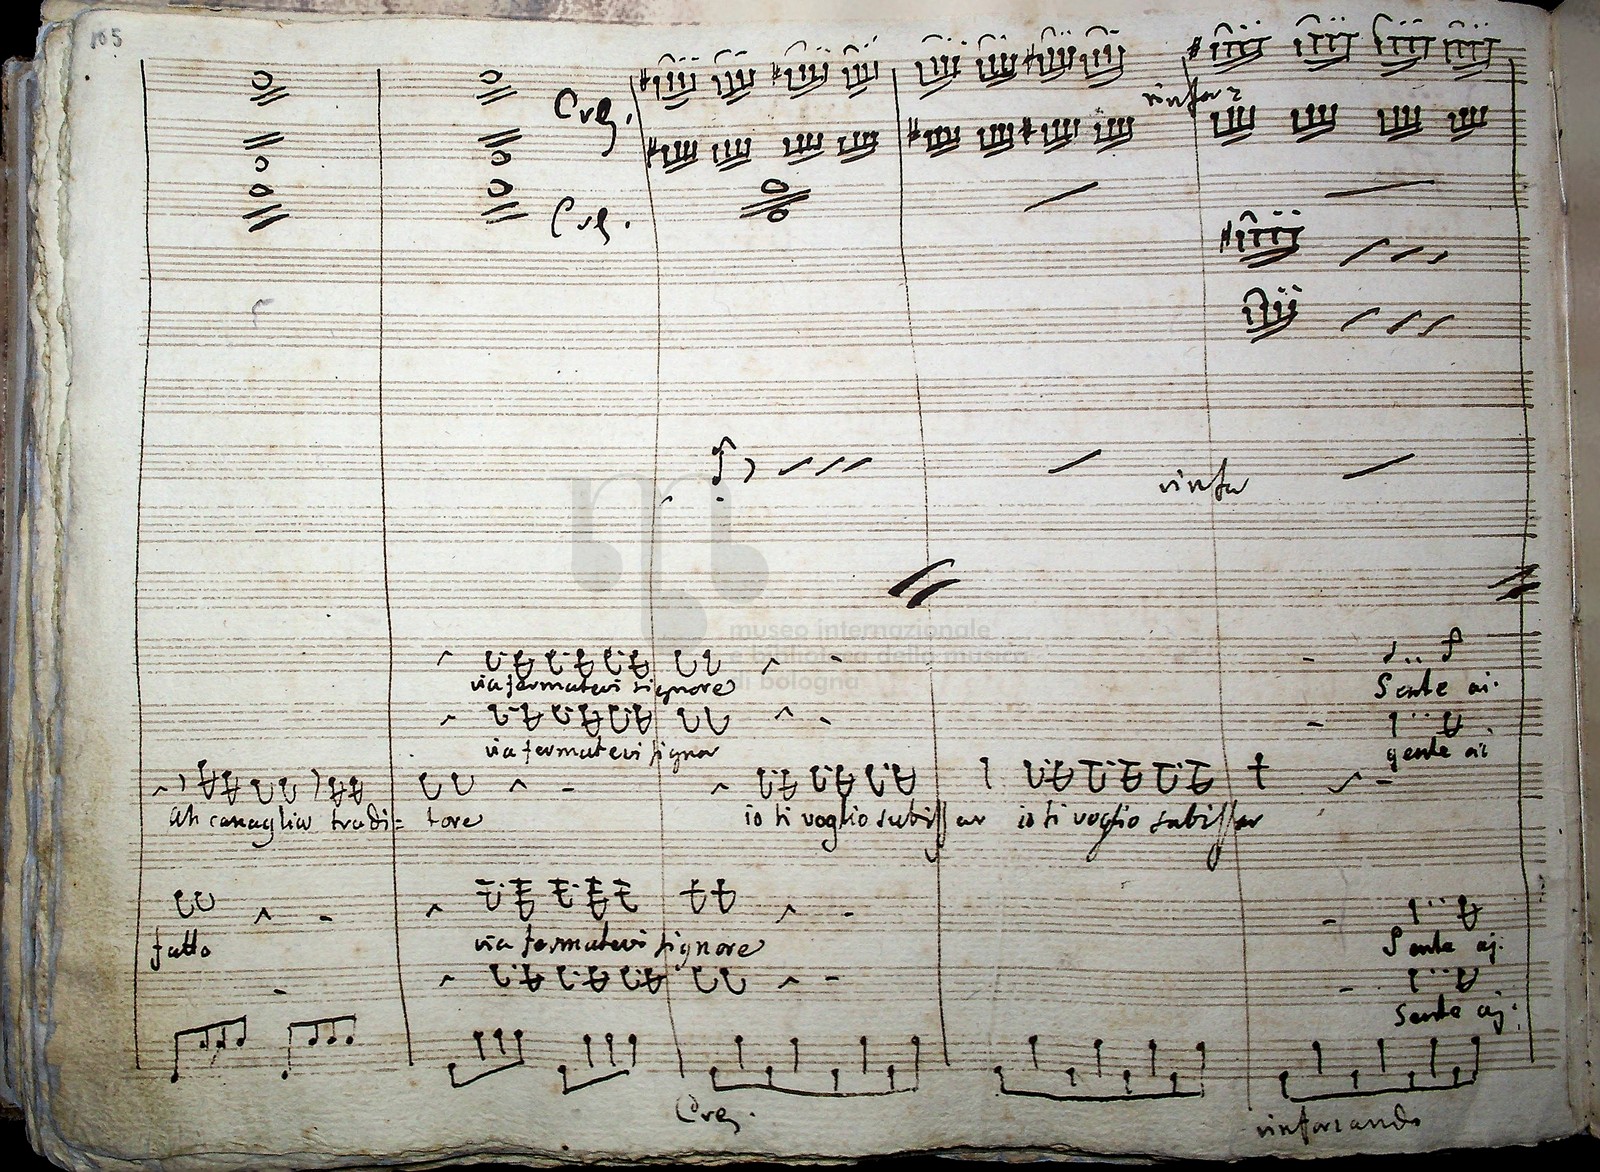 105
Cres.
rinfor:
Cres.
rinfor
museo internazionale
e biblioteca della musica
di bologna
via fermatevi signore
Sente ai.
via fermatevi signor
gente ai
Ah canaglia tradi= tore io ti voglio subissar io ti voglio subissar
fatto via fermatevi signore
Sente ai:
Sente ai:
Cres.
rinforzando